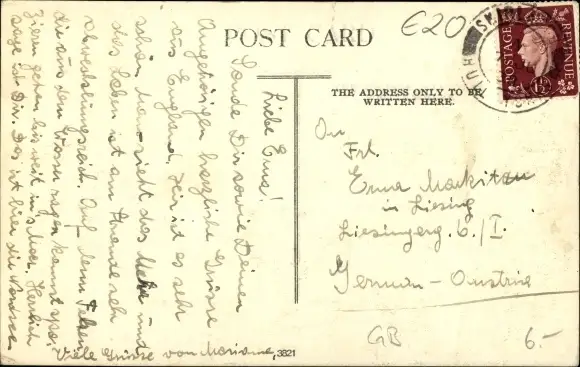 POST CARD
€20
SK
HU
POSTAGE
REVENUE
1½D
THE ADDRESS ONLY TO BE
WRITTEN HERE.
Liebe Erna!
Sende Dir sowie Deinen
Angehörigen herzliche Grüsse
aus England. Hier ist es sehr
schön. Man sieht das Meer und
das Leben ist am Strande sehr
abwechslungsreich. Auf dem Felsen
die aus dem Wasser ragen kannst spa-
zieren gehen bis weit in's Meer. Herrlich
sage ich Dir. Das ist hier die Nordsee
Viele Grüsse von Marianne,
3821
An
Frl.
Erna
in Liesing
Liesingerg. 6./I.
German-Oustria
GB
6.-